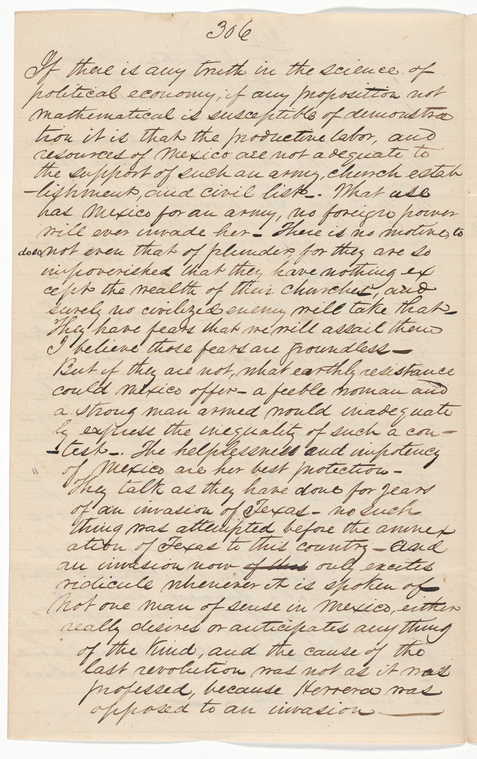 306
If there is any truth in the science of
political economy, if any proposition not
mathematical is susceptible of demonstra
tion it is that the productive labor, and
resources of Mexico are not adequate to
the support of such an army, church estab
-lishment, and civil list-. What use
has Mexico for an army, no foreign power
will ever invade her- There is no motive to
do so, not even that of plunder, for they are so
impoverished that they have nothing ex
cept the wealth of their churches, and
surely no civilized enemy will take that-
They have fears that we will assail them
I believe those fears are groundless-
But if they are not, what earthly resistance
could Mexico offer- a feeble woman and
a strong man armed would inadequate
ly express the inequality of such a con-
-test-. The helplessness and impotency
" of Mexico are her best protection-
They talk as they have done for years
of an invasion of Texas- no such
thing was attempted before the annex
ation of Texas to this country- And
an invasion now only excites
ridicule whenever it is spoken of
Not one man of sense in Mexico, either
really desires or anticipates any thing
of the kind, and the cause of the
last revolution was not as it was
professed, because Herrera was
opposed to an invasion—